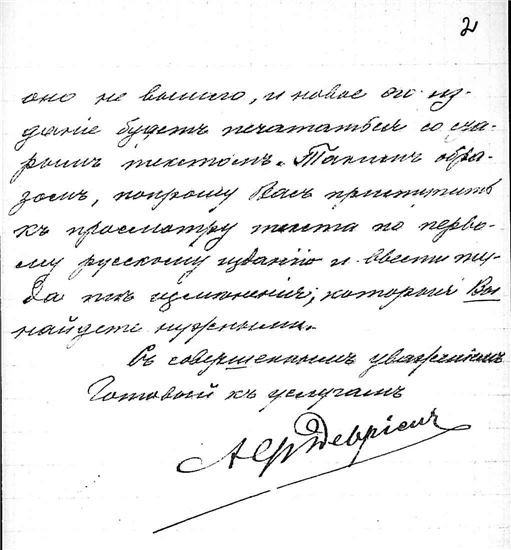 2
оно не вышло, и новое его из-
данiе будетъ печататься со ста-
рымъ текстомъ. Такимъ обра-
зомъ, попрошу Васъ приступить
къ просмотру текста по перво-
му русскому изданiю и ввести ту-
да тѣ измѣненiя, которыя Вы
найдете нужными.
Съ совершеннымъ уваженiемъ
Готовый къ услугамъ
АФДеврiенъ